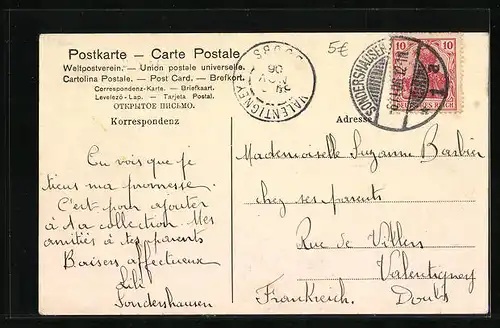 Postkarte - Carte Postale
Weltpostverein. - Union postale universelle.
Cartolina Postale. - Post Card. - Brefkort.
Correspondenz-Karte. - Briefkaart.
Levelező-Lap. - Tarjeta Postal.
ОТКРЫТОЕ ПИСЬМО.
Korrespondenz
5€
VALENTIGNEY
DOUBS
06
SONDERSHAUSEN
10 10
REICH
Adresse
Tu vois que je
tiens ma promesse.
C'est pour ajouter
à ta collection. Mes
amitiés à tes parents
Baisers affectueux
Lili
Sondershausen
Mademoiselle Suzanne Barbier
chez ses parents
Rue de Villers
Valentigney
Frankreich. Doubs